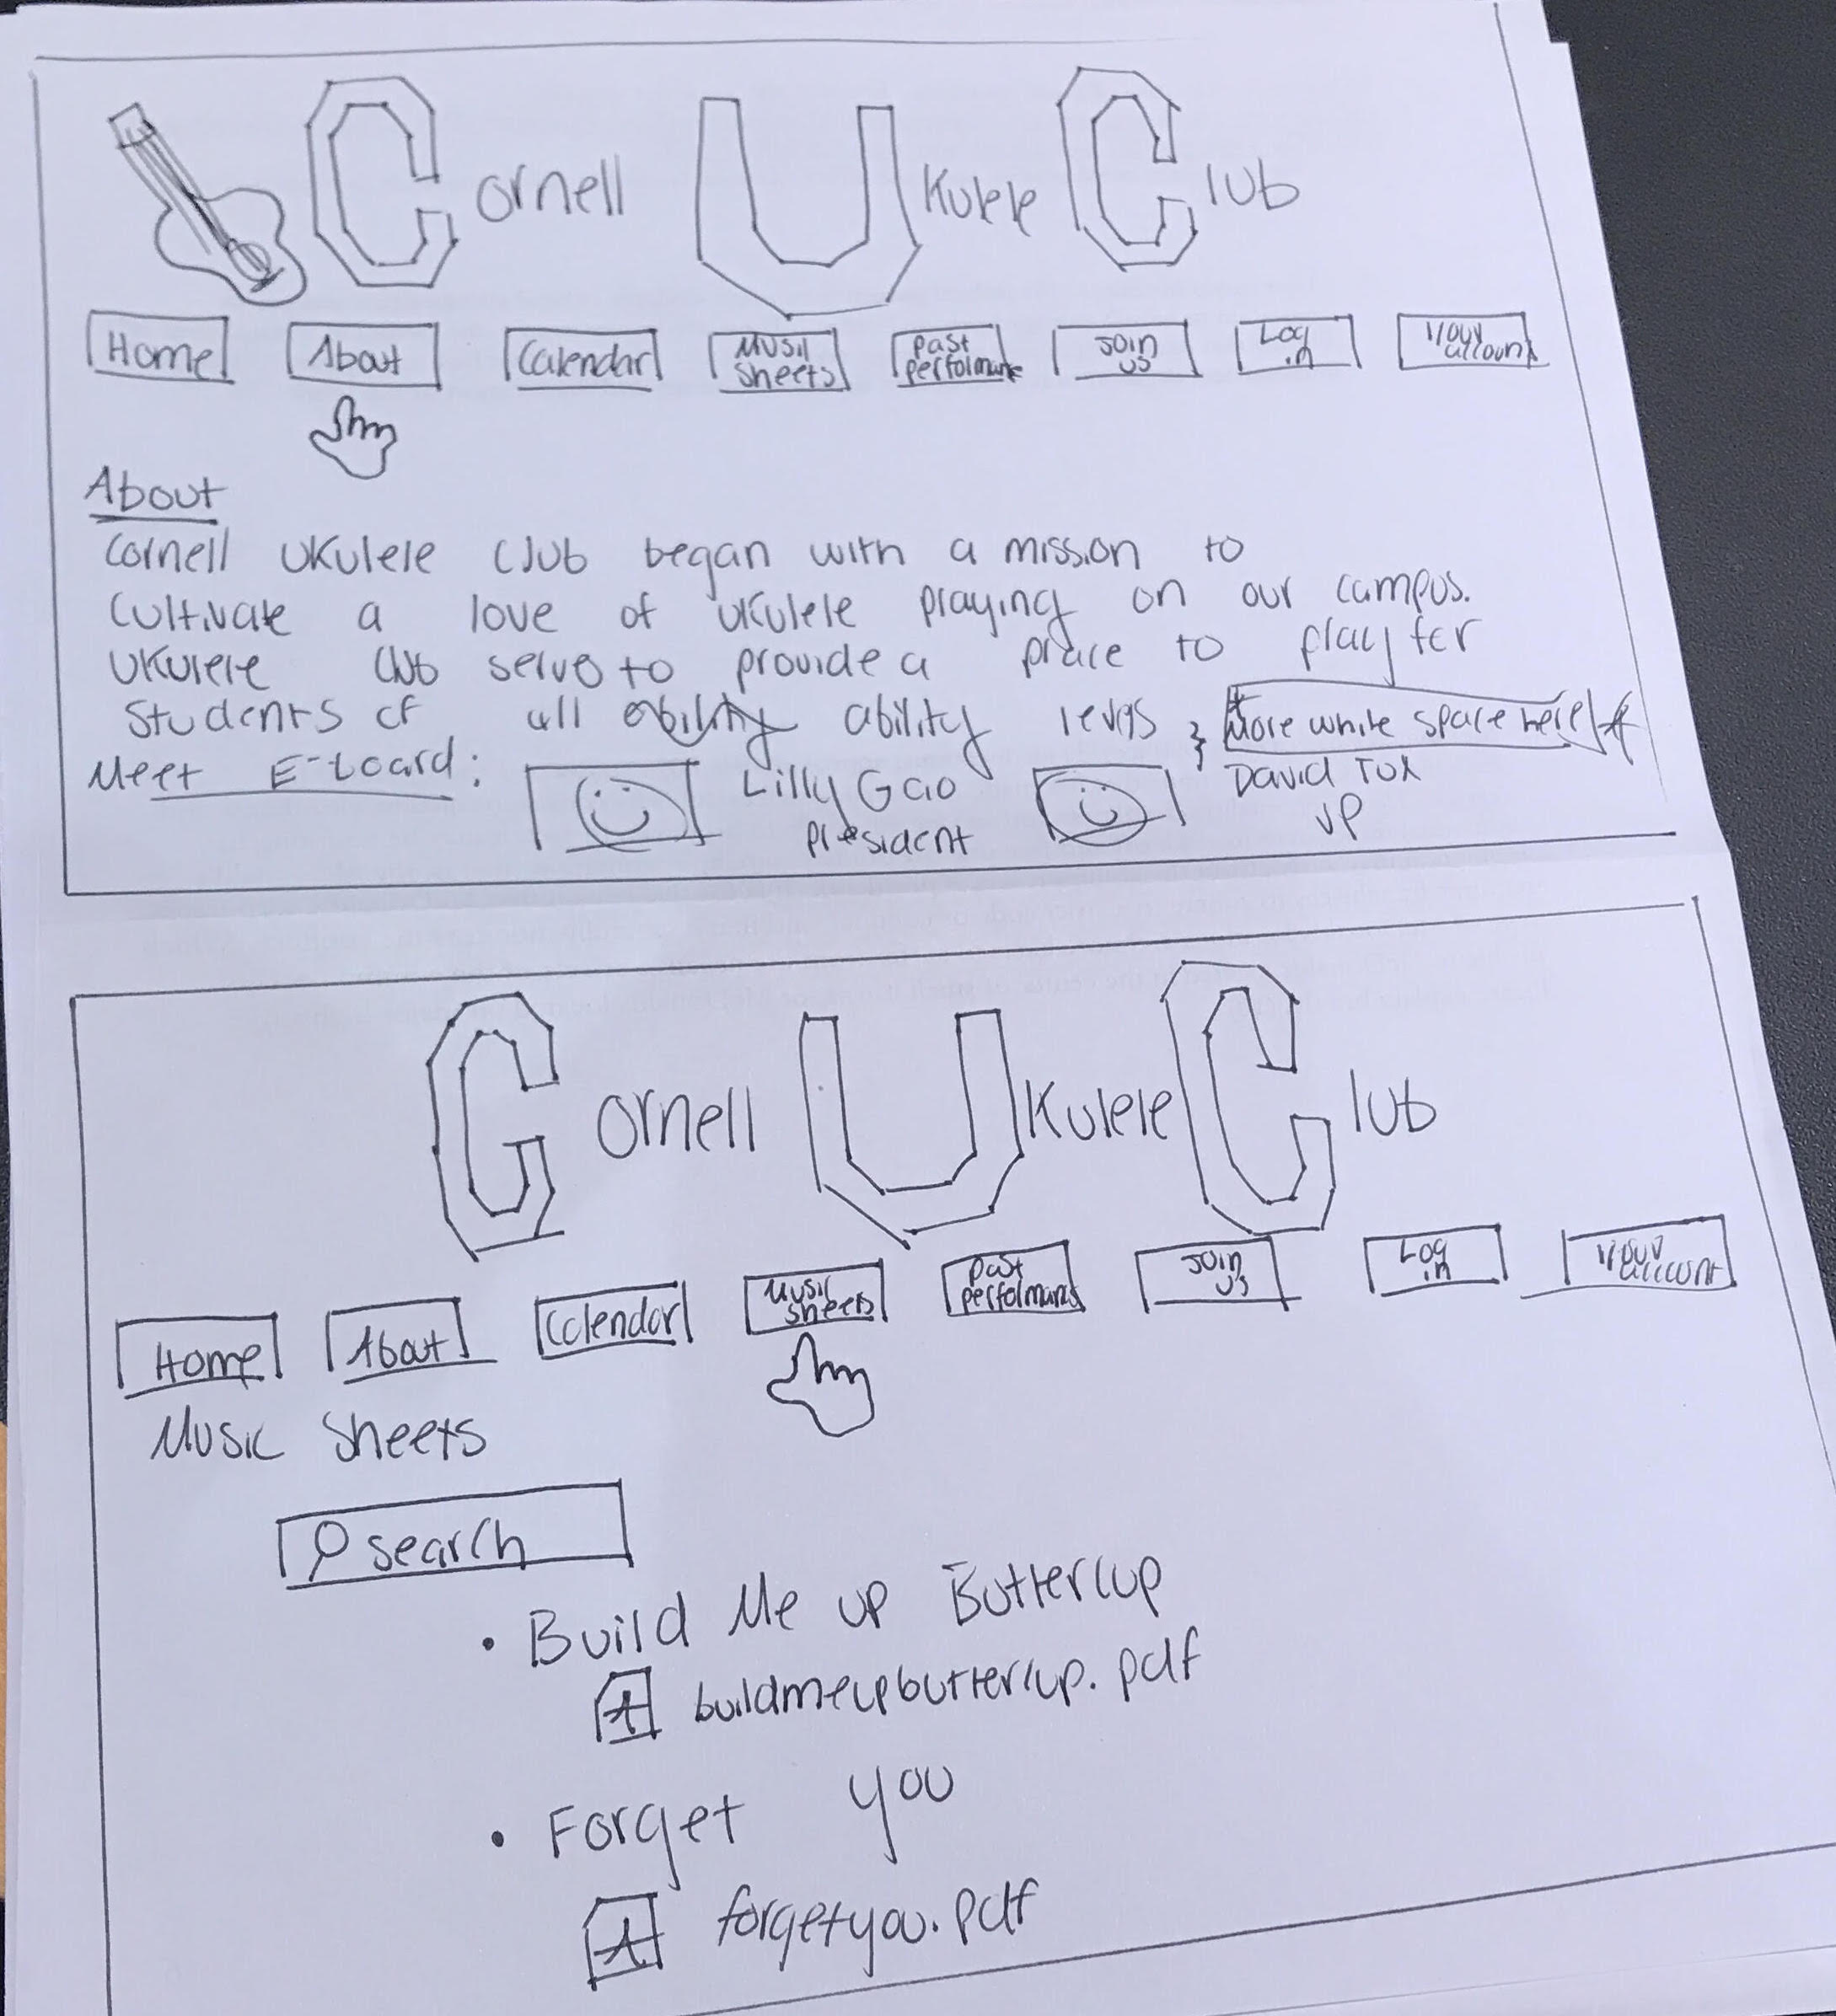 Cornell Ukulele Club
Home About Calendar Music Sheets Past performans Join us Log in Your account
About
Cornell Ukulele Club began with a mission to
cultivate a love of ukulele playing on our campus.
Ukulele club serve to provide a place to play for
students of all ability ability levels
*More white space here*
Meet E-board: Lilly Gao David Tox
President VP
Cornell Ukulele Club
Home About Calendar Music Sheets Past performans Join us Log in Your account
Music Sheets
search
• Build Me up Buttercup
buildmeupbuttercup.pdf
• Forget you
forgetyou.pdf